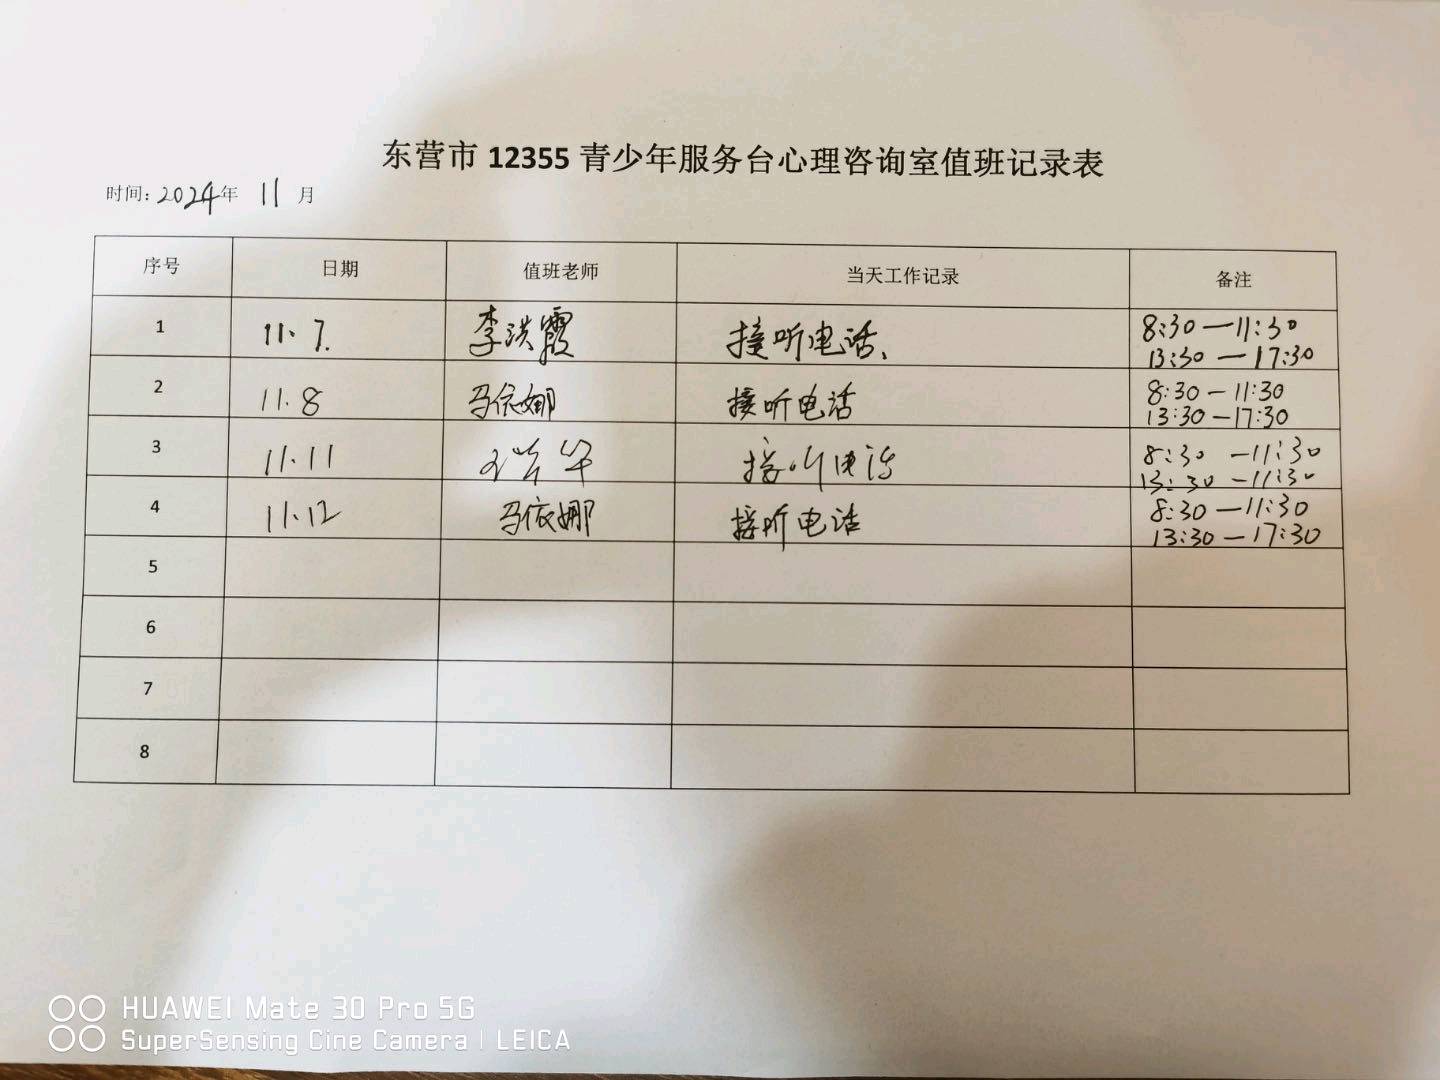 东营市 12355 青少年服务台心理咨询室值班记录表
时间: 2024年 11 月
序号 日期 值班老师 当天工作记录 备注
1 11.7. 李洪霞 接听电话、 8:30—11:30
13:30—17:30
2 11.8 马依娜 接听电话 8:30—11:30
13:30—17:30
3 11.11 接听电话 8:30—11:30
13:30—11:30
4 11.12 马依娜 接听电话 8:30—11:30
13:30—17:30
5
6
7
8
HUAWEI Mate 30 Pro 5G
SuperSensing Cine Camera | LEICA